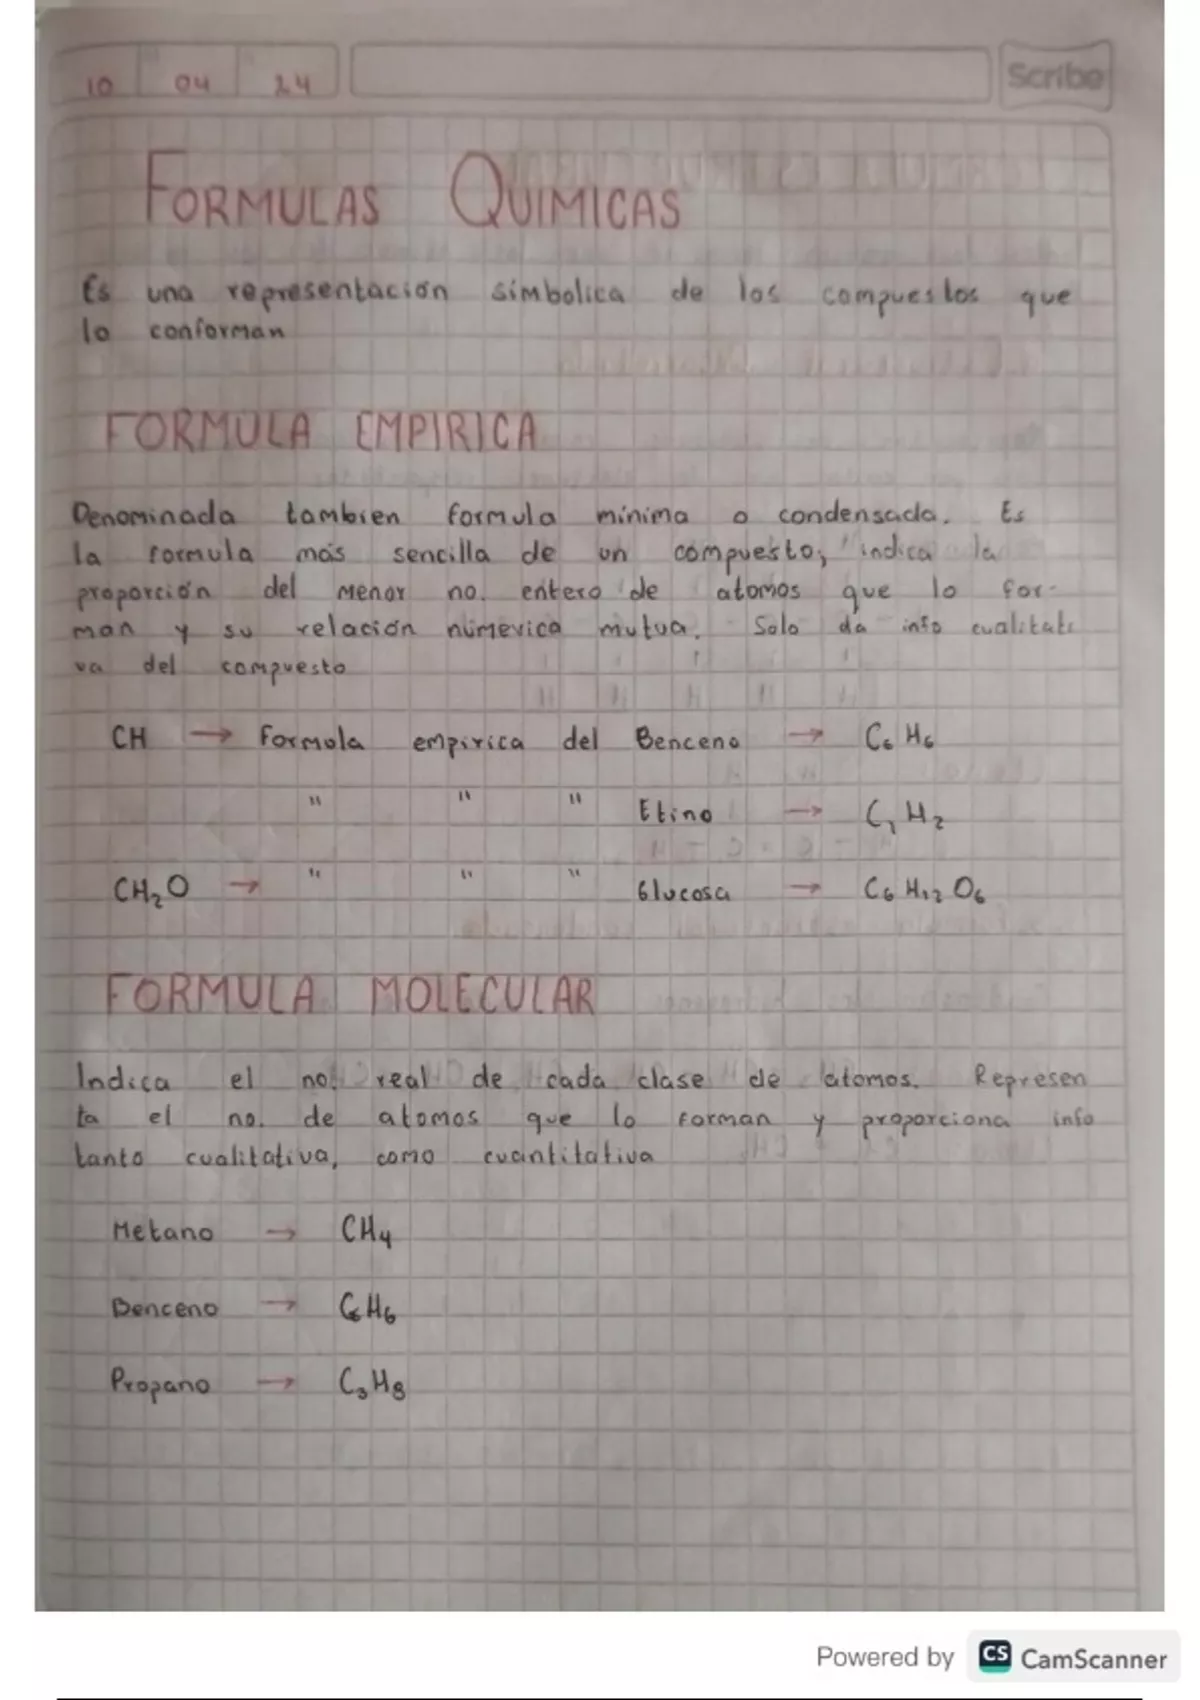 10 04 24 Scribe
FORMULAS QUIMICAS
Es una representación simbolica de los compuestos que
lo conforman
FORMULA EMPIRICA
Denominada tambien formula mínima o condensada. Es
la formula más sencilla de un compuesto, indica la
proporción del menor no. entero de atomos que lo for-
man y su relación númerica mutua. Solo da info cualitati
va del compuesto
CH → formula empirica del Benceno → C₆H₆
" " " Etino → C₂H₂
CH₂O → " " " Glucosa → C₆H₁₂O₆
FORMULA MOLECULAR
Indica el no. real de cada clase de atomos. Represen
ta el no. de atomos que lo forman y proporciona info
tanto cualitativa, como cuantitativa
Metano → CH₄
Benceno → C₆H₆
Propano → C₃H₈
Powered by CS CamScanner